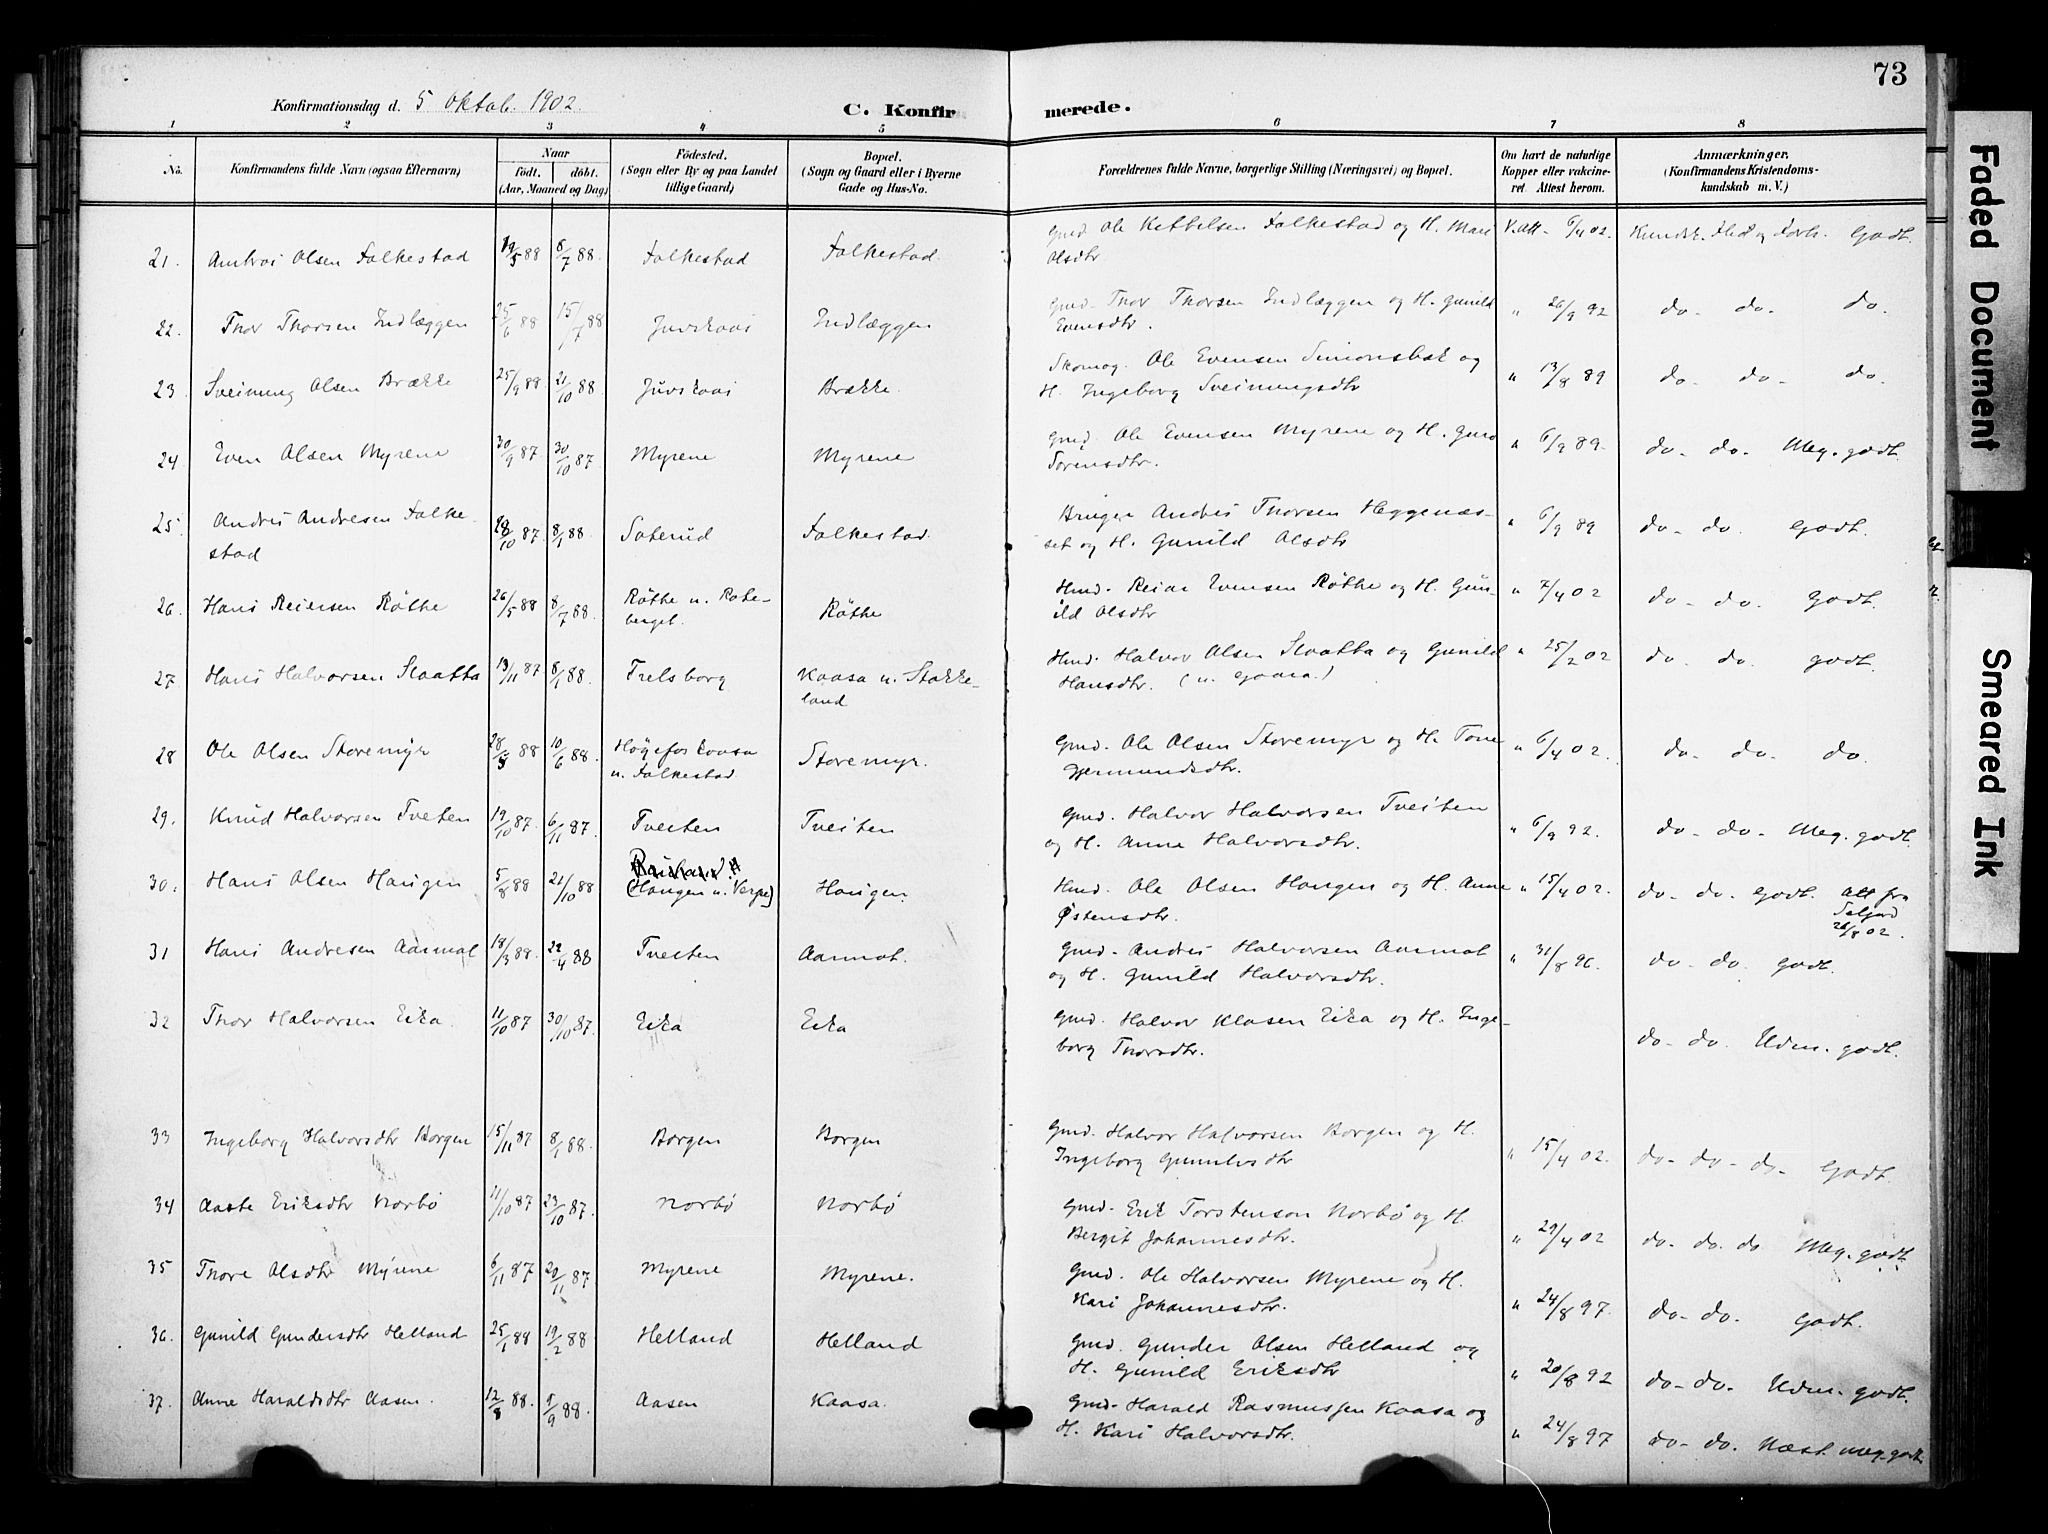 73
Konfirmationsdag d. 5 Oktob. 1902.
C. Konfirmerede.
1 2 3 4 5 6 7 8
No.
Konfirmandens fulde Navn (ogsaa Efternavn)
Naar
født. døbt.
(Aar, Maaned og Dag)
Födested.
(Sogn eller By og paa Landet
tillige Gaard)
Bopæl.
(Sogn og Gaard eller i Byerne
Gade og Hus-No.
Forældrenes fulde Navne, borgerlige Stilling (Næringsvei) og Bopæl.
Om havt de naturlige
Kopper eller vakcine-
ret. Attest herom.
Anmærkninger.
(Konfirmandens Kristendoms-
kundskab m. V.)
21. Olsen Falkestad 19/5 88 8/7 88. Falkestad Falkestad. Gmd. Ole Kettelsen Falkestad og H. Mari V. Att. 6/4 02. Kundsk. Flid og Forh. Godt.
Olsdtr
22. Thor Thorsen Indlæggen 25/6 88 15/7 88 Juvskaas Indlæggen Gmd. Thor Thorsen Indlæggen og H. Gunild " 26/9 92 do. do. do.
Evensdtr.
23. Sveinung Olsen Brække 25/9 88 21/10 88. Juvskaas Brække Skomag. Ole Evensen Simonsbak og " 13/8 89 do. do. do.
H. Ingeborg Sveinungsdtr
24. Even Olsen Myrene 30/9 87 30/10 87. Myrene Myrene Gmd. Ole Evensen Myrene og H. Guro " 6/9 89. do. do. Meg. godt.
Sorensdtr.
25. Andres Andresen Falke-
stad 28/10 87. 8/1 88. Saterud Falkestad. Bruger Andres Thorsen Heggenæs- " 6/9 89 do. do. Godt.
set og H. Gunild Olsdtr
26. Hans Reiersen Røthe 26/5 88 8/7 88. Røthe u. Robe- Røthe Hmd. Reiar Evensen Røthe og H. Gun- " 7/4 02 do. do. Godt.
berget. ild Olsdtr
27. Hans Halvorsen Slaatta 13/11 87 8/1 88. Frelsborg Kaasa u. Stokke-
land Hmd. Halvor Olsen Slaatta og Gunild " 25/2 02 do. do. godt.
Hansdtr. (u. Gaara.)
28 Ole Olsen Storemyr 28/5 88 10/6 88. Høgefoskaasa Storemyr. Gmd. Ole Olsen Storemyr og H. Tone " 6/4 02. do. do. do.
u. Falkestad Gjermundsdtr.
29. Knud Halvorsen Tveten 19/10 87. 6/11 87. Tveiten Tveiten Gmd. Halvor Halvorsen Tveiten " 6/9 92. do. do. Meg. godt.
og H. Anne Halvorsdtr.
30. Hans Olsen Haugen 5/8 88 21/10 88 (Haugen u. Verpe) Haugen. Hmd. Ole Olsen Haugen og H. Anne " 15/4 02. do. do. Godt. Att fra
Østensdtr. Seljord
26/8 02.
31 Hans Andresen Aarmot 18/3 88. 22/4 88 Tveiten Aarmot. Gmd. Andres Halvorsen Aarmot " 31/8 96. do. do. godt.
og H. Gunild Halvorsdtr.
32 Thor Halvorsen Eika. 11/10 87 30/10 87. Eika Eika Gmd. Halvor Klasen Eika og H. Inge-
borg Thorsdtr. do. do. Udm. godt.
33 Ingeborg Halvorsdtr Borgen 15/11 87 8/1 88. Borgen Borgen Gmd. Halvor Halvorsen Borgen og H. " 15/4 02. do. do. do. Godt.
Ingeborg
34 Aaste Eriksdtr Norbø 11/10 87 23/10 87. Norbø Norbø Gmd. Erik Torstenson Norbø og H. " 29/4 02 do. do. do Meg. godt.
Bergit Johannesdtr.
35 Thore Olsdtr Myrene 6/11 87 20/11 87 Myrene Myrene. Gmd. Ole Halvorsen Myrene og H. " 24/8 97. do. do. Godt.
Kari Johannesdtr.
36. Gunild Gundersdtr Helland 25/1 88 19/2 88 Helland Helland Gmd. Gunder Olsen Helland og " 20/8 92 do. do. Udm. godt.
H. Gunild Eriksdtr
37. Anne Haraldsdtr Aasen. 12/8 88. 9/9 88. Aasen Kaasa. Gmd. Harald Rasmussen Kaasa og " 24/8 97 do. do. Næst. meg. godt
H. Kari Halvorsdtr.
Faded Document
Smeared Ink